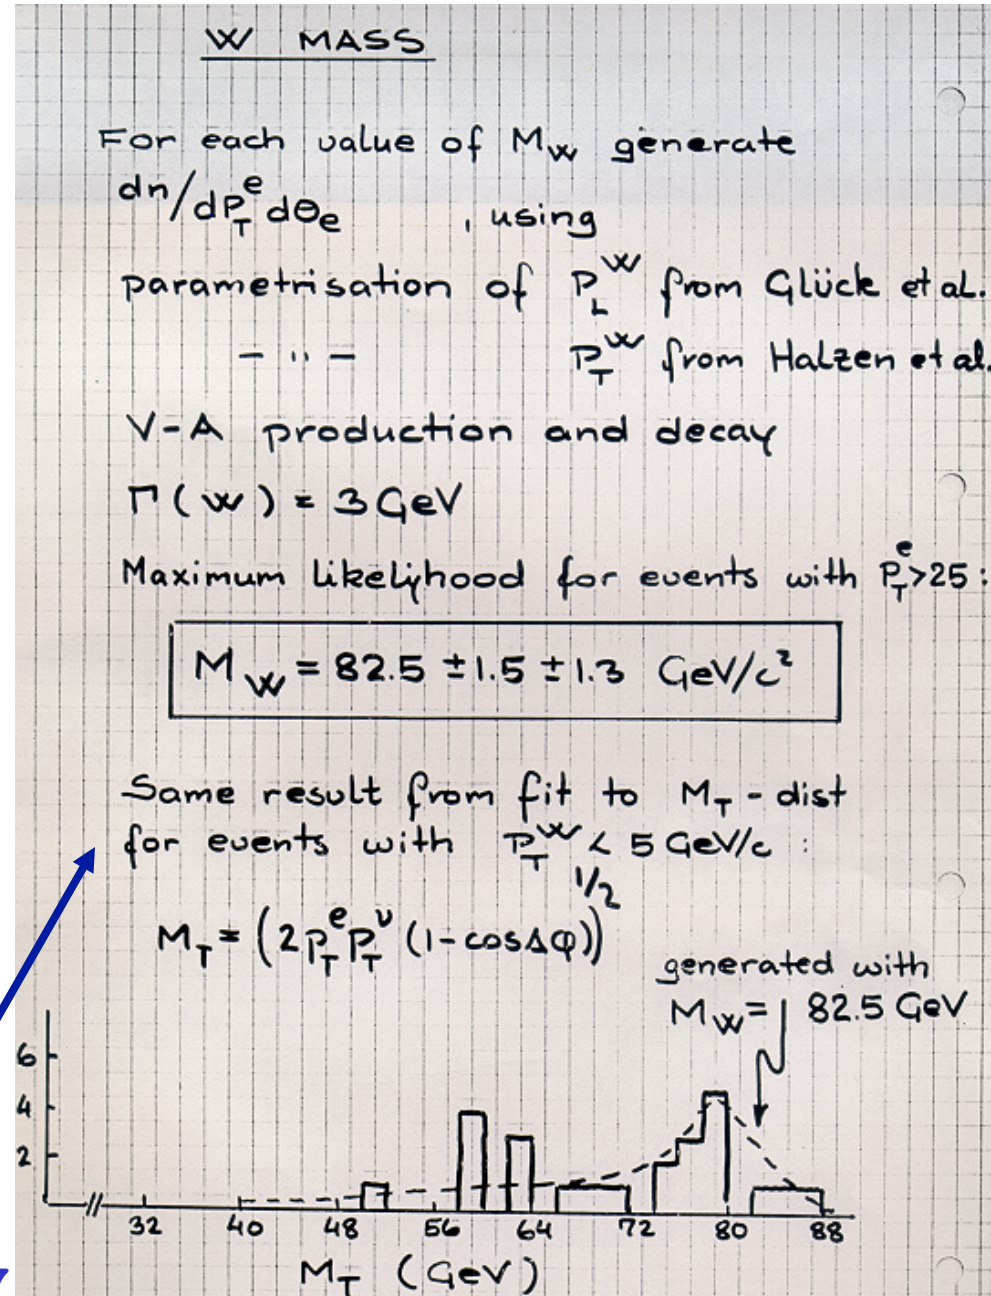 W MASS
For each value of M_W generate
dn/dP_T^e dΘ_e , using
parametrisation of P_L^W from Glück et al.
— " — P_T^W from Halzen et al.
V-A production and decay
Γ(W) = 3 GeV
Maximum likelijhood for events with P_T^e > 25 :
M_W = 82.5 ± 1.5 ± 1.3 GeV/c²
Same result from fit to M_T - dist
for events with P_T^W < 5 GeV/c :
M_T = (2 P_T^e P_T^ν (1 - cos Δφ))^1/2
generated with
M_W = 82.5 GeV
6
4
2
32 40 48 56 64 72 80 88
M_T (GeV)